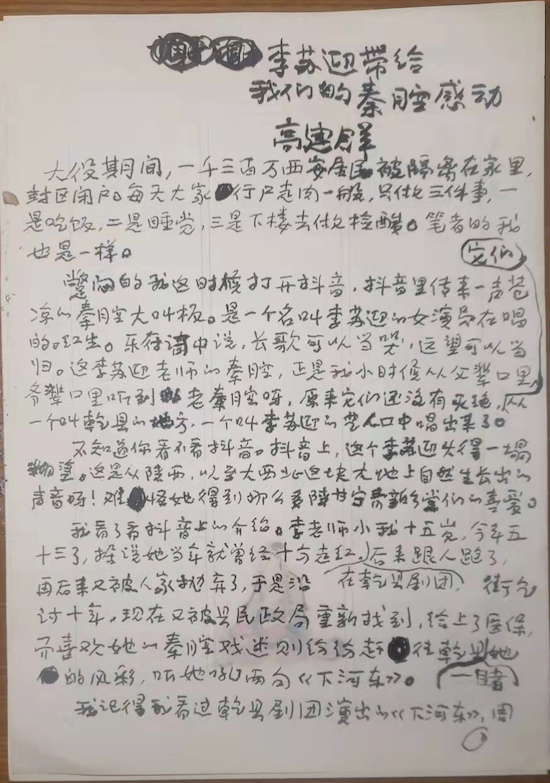 李苏迎带给
我们的秦腔感动
高建群
大役期间，一千三百万西安居民被隔离在家里，
封区闭户。每天大家行尸走肉一般，只做三件事，一
是吃饭，二是睡觉，三是下楼去做检酸。笔者的我
也是一样。
它们
蹩闷的我这时候打开抖音，抖音里传来一声苍
凉的秦腔大叫板。是一个名叫李苏迎的女演员在唱
的。红生。乐府词中说，长歌可以当哭，远望可以当
归。这李苏迎老师的秦腔，正是我小时候从父辈口里，
爷辈口里听到老秦腔呀，原来它们还没有灭绝，从
一个叫乾县的地方，一个叫李苏迎的艺人口中唱出来了。
不知道你看不看抖音。抖音上，这个李苏迎火得一塌
糊塗。这是从陕西，以至大西北这块大地上自然生长出的
声音呀！难怪她得到那么多陕甘宁青新乡党们的喜爱。
我看了看抖音上的介绍。李老师小我十五岁，今年五
十三了，据说她当年就曾经十分走红，后来跟人跑了，
再后来又被人家抛弃了，于是沿 在乾县剧团， 街乞
讨十年，现在又被县民政局重新找到，给上了医保，
而喜欢她的秦腔戏迷则纷纷赶往乾县她
的风彩，听她吼两句《下河东》。 一睹
我记得我看过乾县剧团演出的《下河东》，周
①